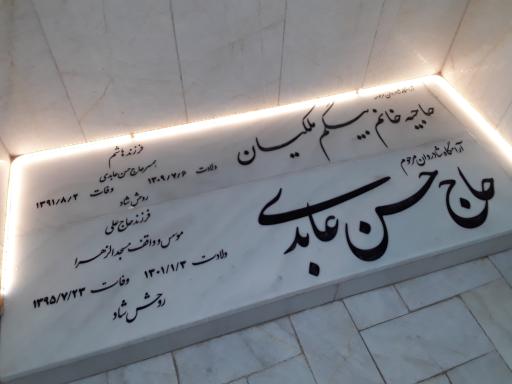 آرامگاه شادروان مرحومه
حاجیه خانم بیگم ملکیان
فرزند هاشم
همسر حاج حسن عابدی
ولادت ۱۳۰۹/۷/۶ وفات ۱۳۹۱/۸/۲
روحش شاد
آرامگاه شادروان مرحوم
حاج حسن عابدی
فرزند حاج علی
موسس و واقف مسجد الزهرا
ولادت ۱۳۰۱/۱/۳ وفات ۱۳۹۵/۷/۲۳
روحش شاد